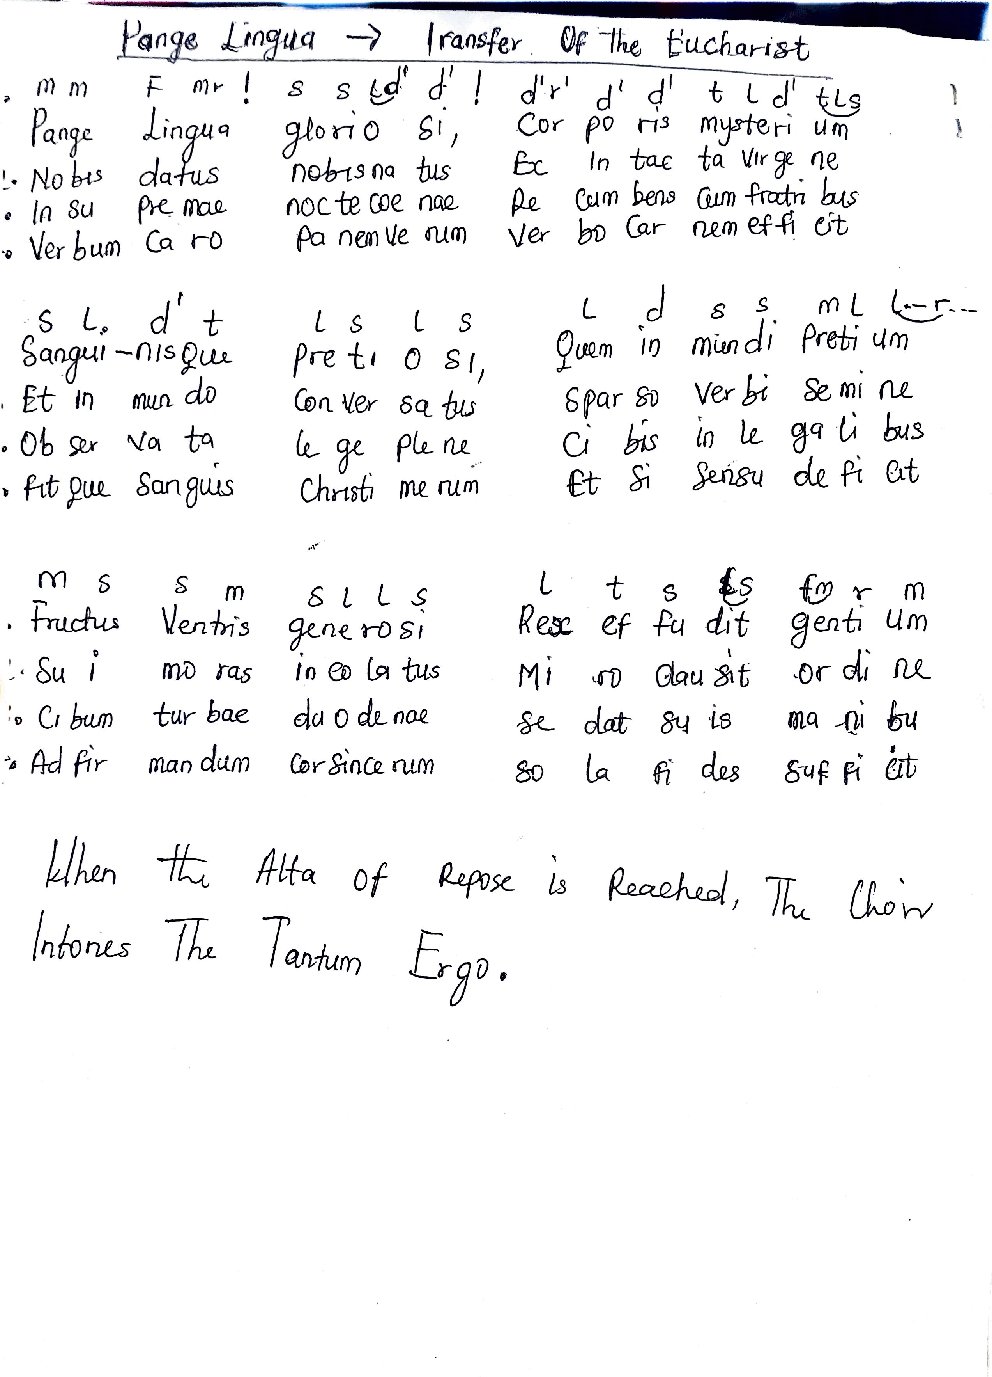 Pange Lingua → Transfer Of The Eucharist
m m F mr ! s s Ld' d' ! d'r' d' d' t L d' tLs
Pange Lingua glorio si, Cor po ris mysteri um
Nobis datus nobis na tus Ex In tac ta Vir ge ne
In su pre mae noc te coe nae Re Cum bens Cum fratri bus
Ver bum Ca ro Pa nem Ve rum Ver bo Car nem ef fi cit
s L. d' t L s L s L d s s. m L L-r---
Sangui-nis Que Pre ti o si, Quem in mundi Preti um
Et in mun do Con ver sa tus Spar so Ver bi Se mi ne
Ob ser va ta le ge Ple ne Ci bis in le ga li bus
fit Que Sanguis Christi me rum Et Si Sensu de fi cit
m s s m s L L s L t s Ls fm r m
Fructus Ventris generosi Rex ef fu dit genti um
Su i mo ras in co la tus Mi ro clau sit or di ne
Ci bum tur bae du o de nae se dat su is ma ni bu
Ad fir man dum Cor Since rum so la fi des suf fi cit
When the Alta of Repose is Reached, The Choir
Intones The Tantum Ergo.